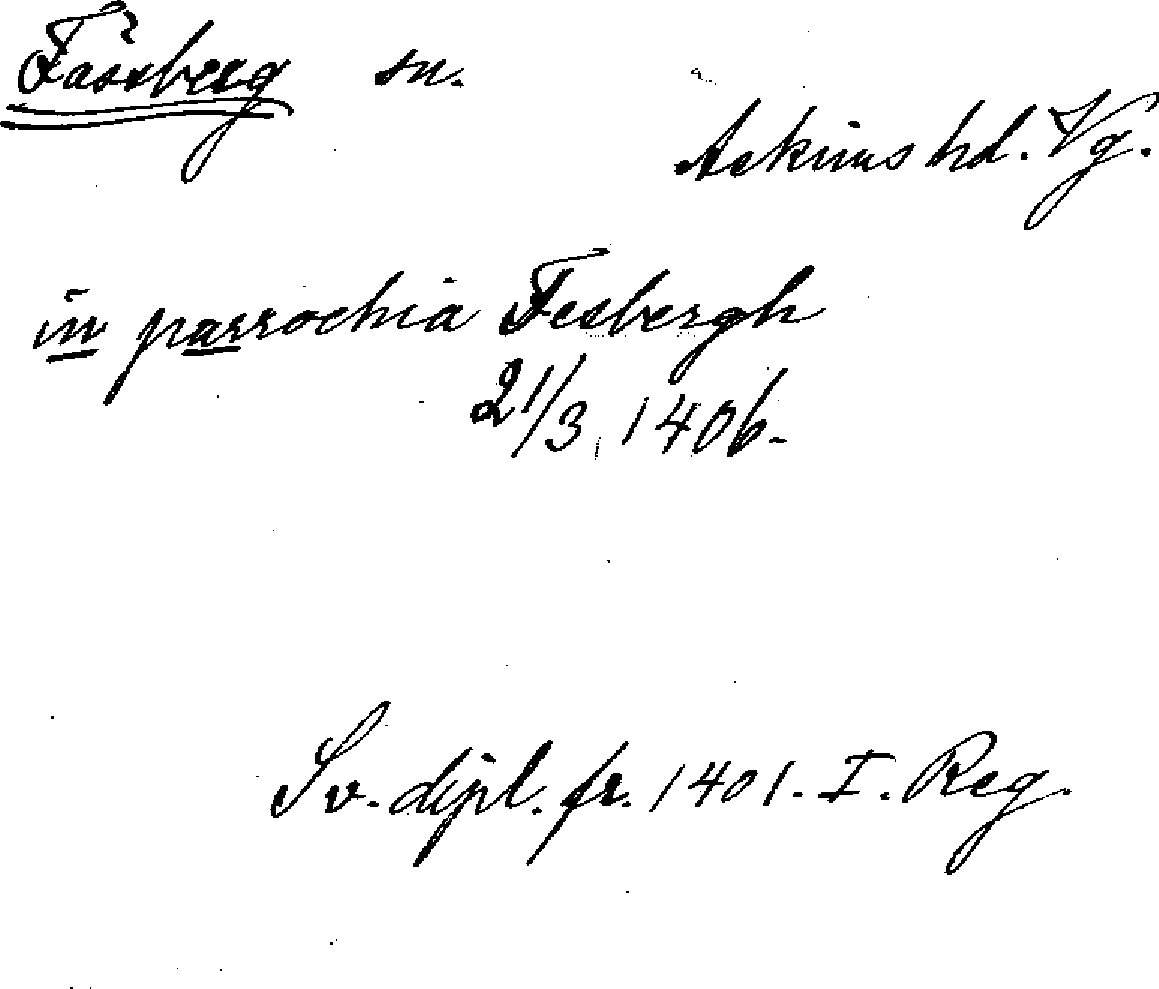 Fässberg sn.
Askims hd. Vg.
in parrochia Fesbergh
21/3 1406.
Sv. dipl. fr. 1401. I. Reg.